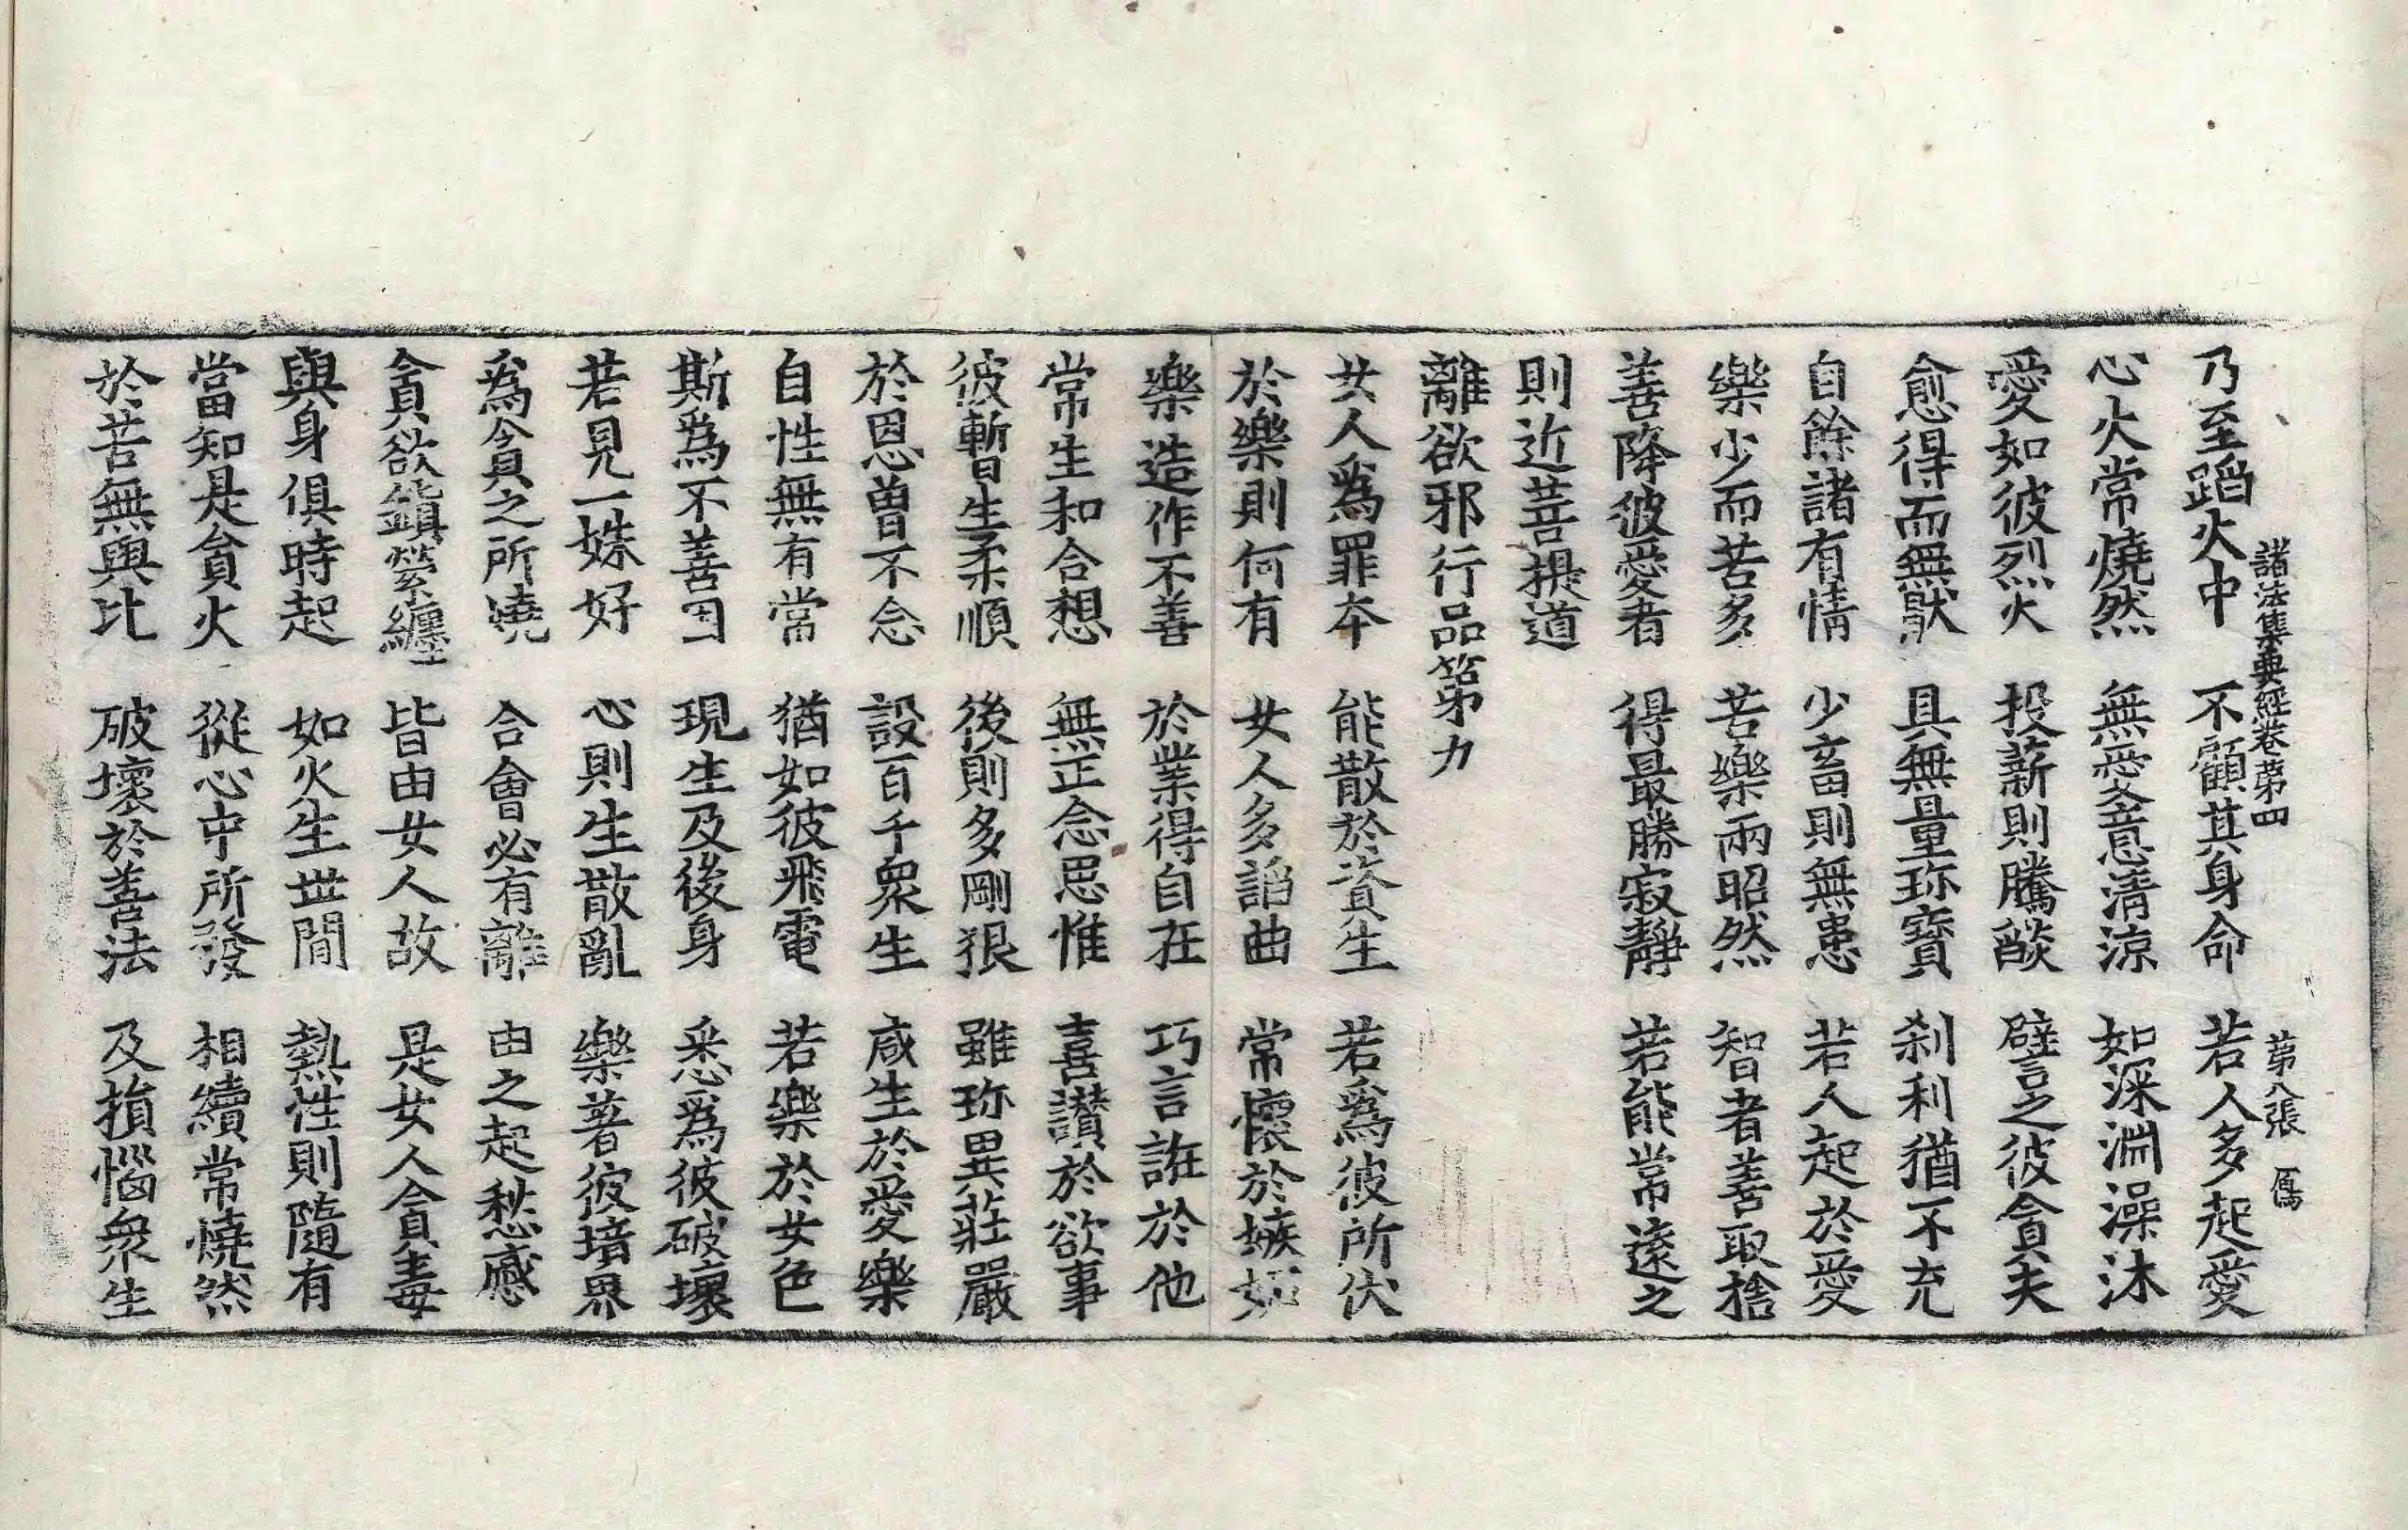 諸法集要經卷第四 第八張 㕒
乃至蹈火中 不顧其身命 若人多起愛
心火常燒然 無愛意清涼 如深淵澡沐
愛如彼烈火 投薪則騰燄 譬之彼貪夫
愈得而無猒 具無量珎寶 刹利猶不充
自餘諸有情 少畜則無患 若人起於愛
樂少而苦多 苦樂兩昭然 智者善取捨
善降彼愛者 得最勝寂靜 若能常遠之
則近菩提道
離欲邪行品第九
女人爲罪本 能散於資生 若爲彼所伏
於樂則何有 女人多諂曲 常懷於嫉妬
樂造作不善 於業得自在 巧言誑於他
常生和合想 無正念思惟 喜讃於欲事
彼暫生柔順 後則多剛狠 雖珎異莊嚴
於恩曽不念 設百千衆生 咸生於愛樂
自性無有常 猶如彼飛電 若樂於女色
斯爲不善因 現生及後身 悉爲彼破壞
若見一姝好 心則生散亂 樂著彼境界
爲貪之所燒 合會必有離 由之起愁慼
貪欲鎖縈纏 皆由女人故 是女人貪毒
與身俱時起 如火生世間 熱性則隨有
當知是貪火 從心中所發 相續常燒然
於苦無與比 破壞於善法 及損惱衆生